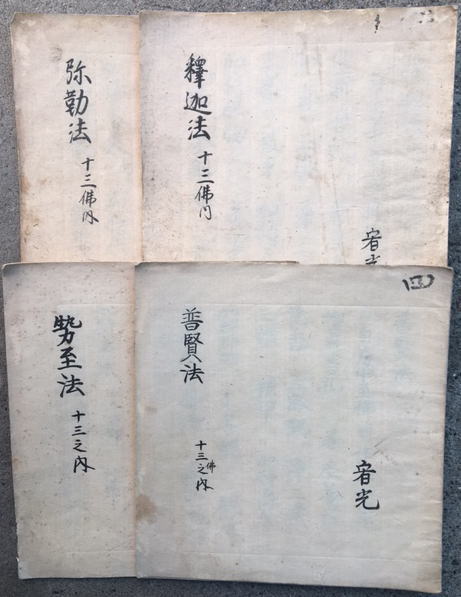 釋迦法
十三佛内
宥光
弥勒法
十三佛内
四
普賢法
十三佛之内
宥光
勢至法
十三之内